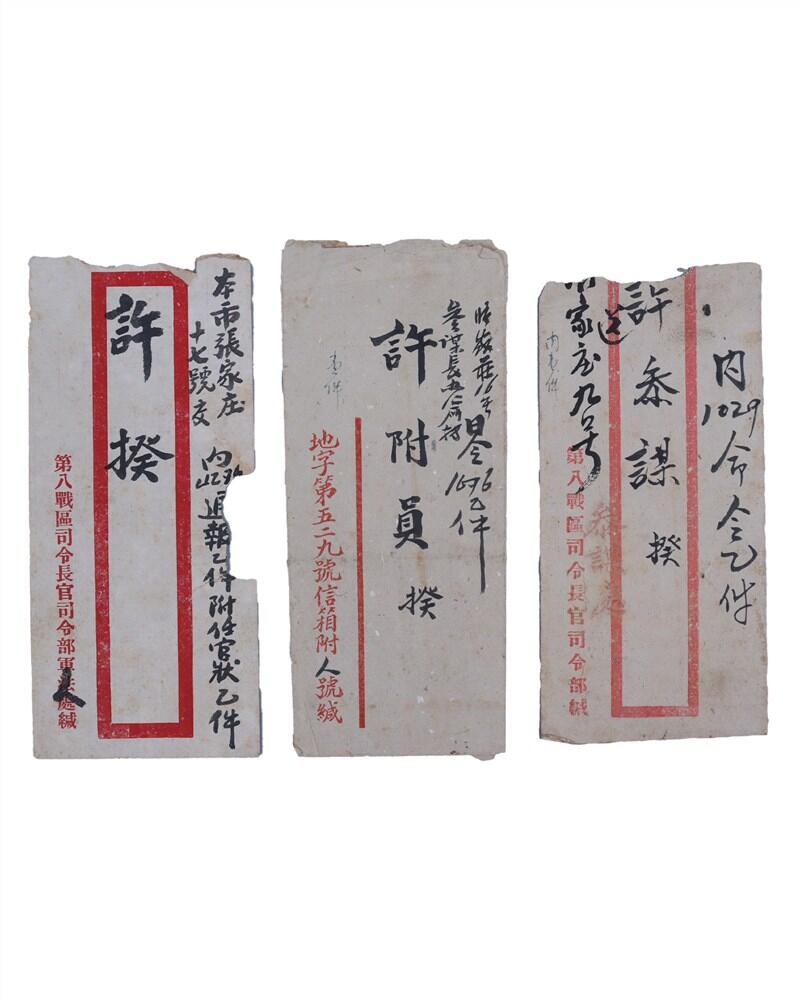 本市張家庄
十七號交
內
通報乙件附任官狀乙件
許揆
第八戰區司令長官司令部軍法處緘
人
參謀長
1696乙件
許附員揆
地字第五二九號信箱附人號緘
內1029命令乙件
許参謀揆
送
家庄九号
內壹件
參謀處
第八戰區司令長官司令部緘